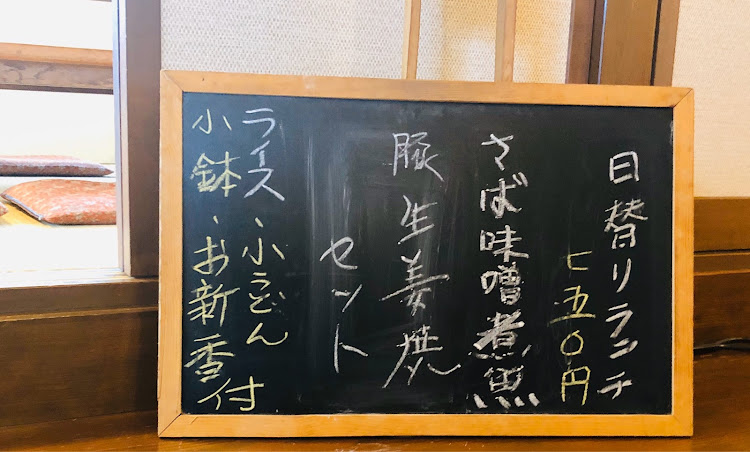 日替りランチ
七五〇円
さば味噌煮魚
豚生姜焼
セット
ライス、小うどん
小鉢、お新香付